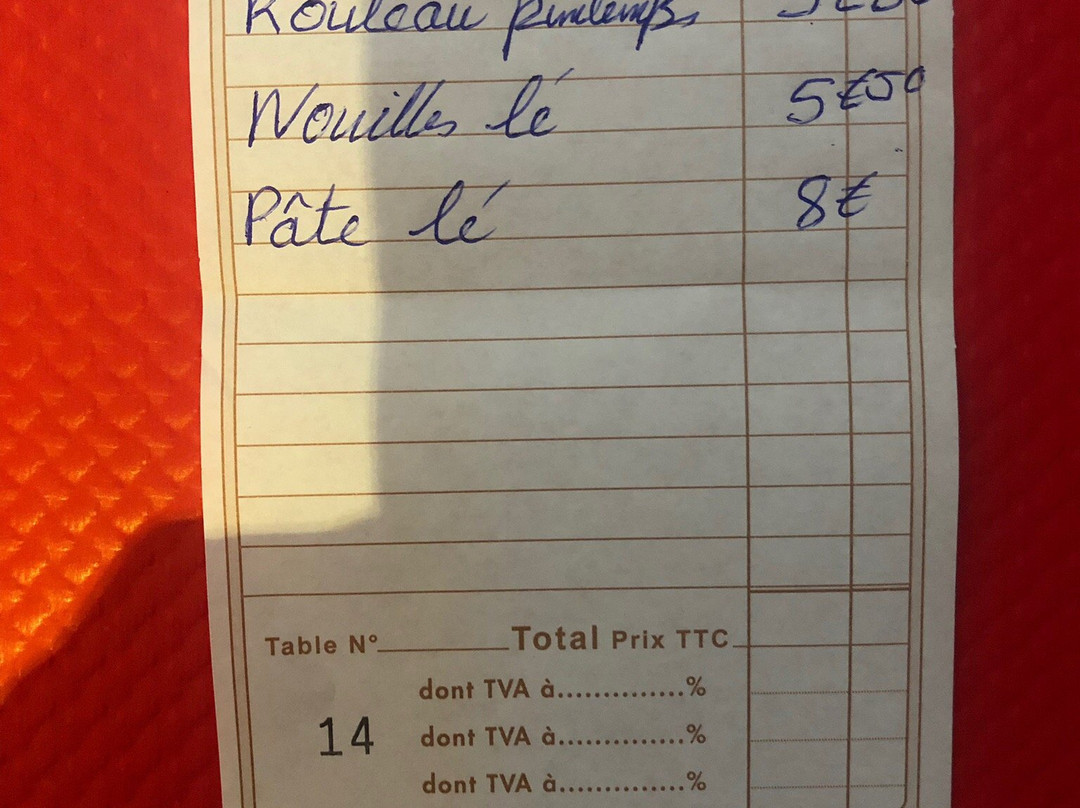 Rouleau printemps
Nouilles lé 5€50
Pâte lé 8€
Table N° Total Prix TTC
dont TVA à..............%
14 dont TVA à..............%
dont TVA à..............%